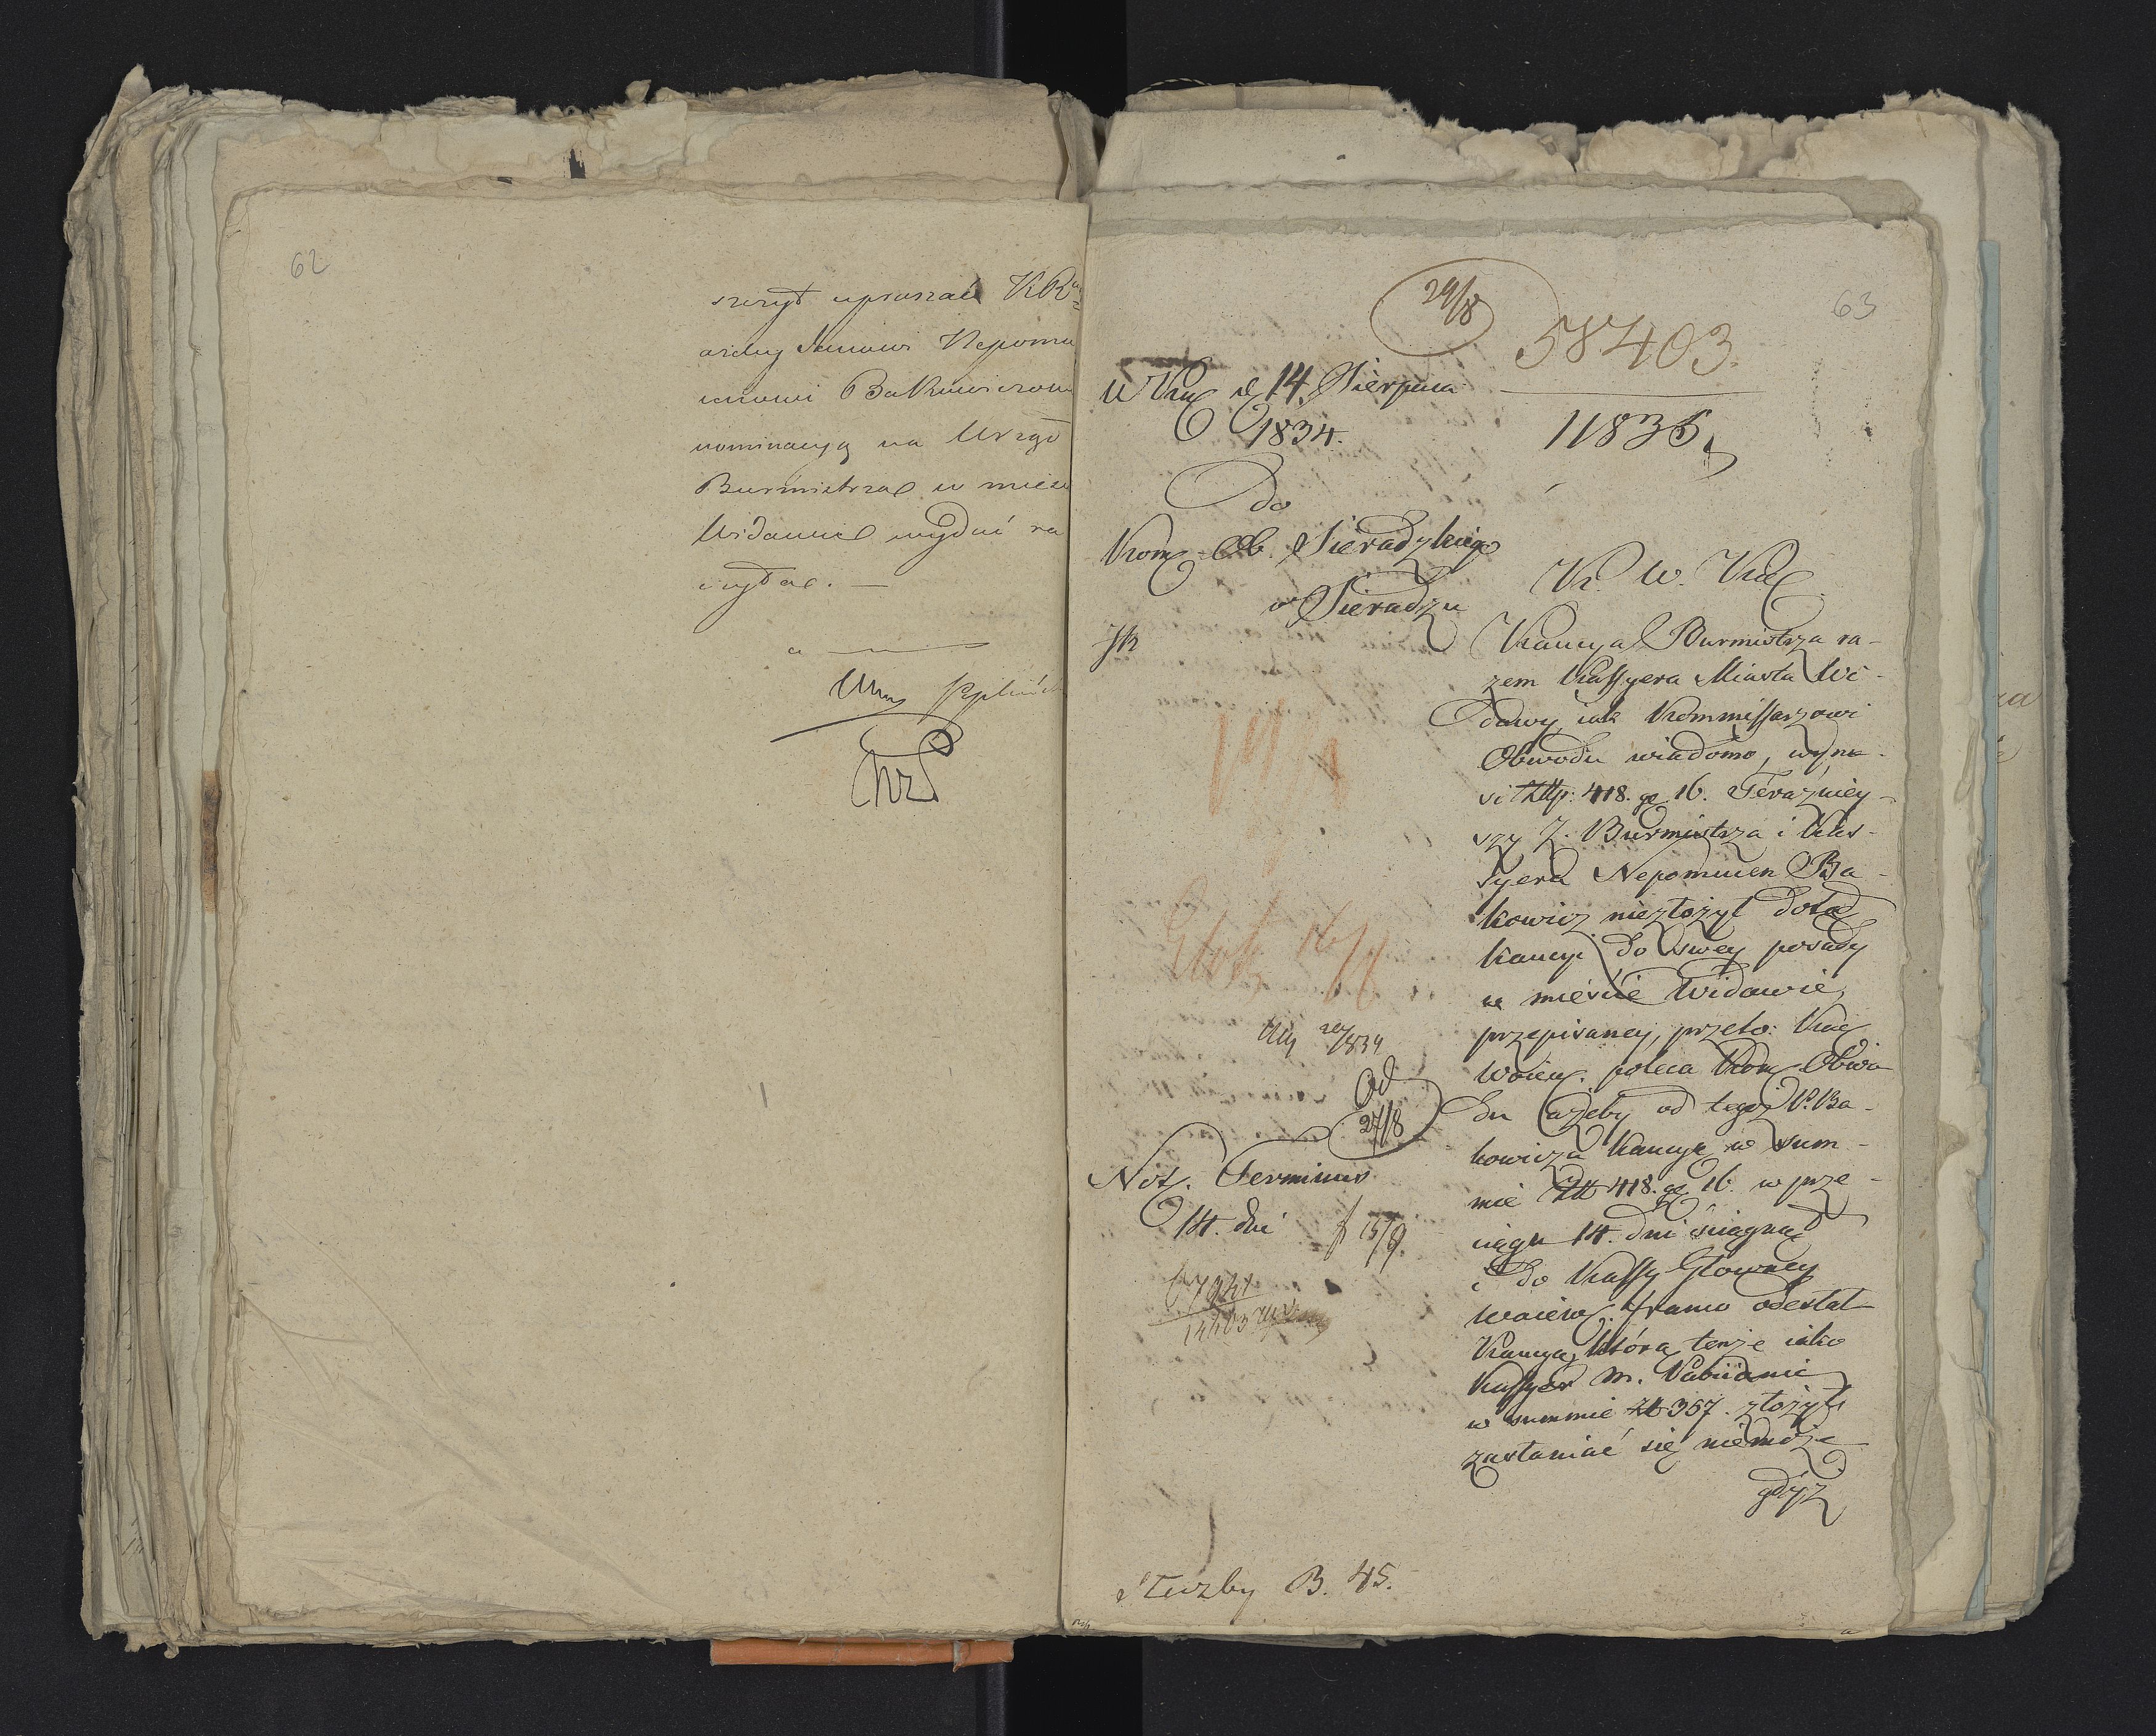 62
szczyt uprasza KR
aszeby Janowi Nepomu
cenowi Bakowiczowi
nominacyą na Urzęd
Burmistrza w mieś
Widawie wydać ra
czyła. —
63
29/8
58403.
11836
W Kal d 14 Sierpnia
1834.
Do
Kom Ob. Sieradzkiego
w Sieradzu
K. W. Kal
Kaucya Burmistrza ra-
zem Kassyera Miasta Wi-
dawy iak Kommissarzowi
Obwodu wiadomo, wyno-
si Złp. 418. gr 16. Teraźniey-
szy Z. Burmistrza i Kas-
syera Nepomucen Ba-
kowicz niezłożył dotąd
kaucyi do swey posady
w mieście Widawie,
przepisaney, przeto: Kom
Woiew. poleca Kom Obwo
du ażeby od tegoż P. Ba-
kowicza kaucyę w sum-
mie Zł 418. gr 16. w prze-
ciągu 14. dni ściągnął
i do Kassy Głowney
Woiew. franco odesłał
Kaucyą, którą tenże iako
Kassyer m. Pabianic
w summie Zł 357. złożył
zasłaniać się niemoże
gdyż
20/8 34
Od
27/8
Not. Terminus
14. dni
15/9.
służby B. 45.